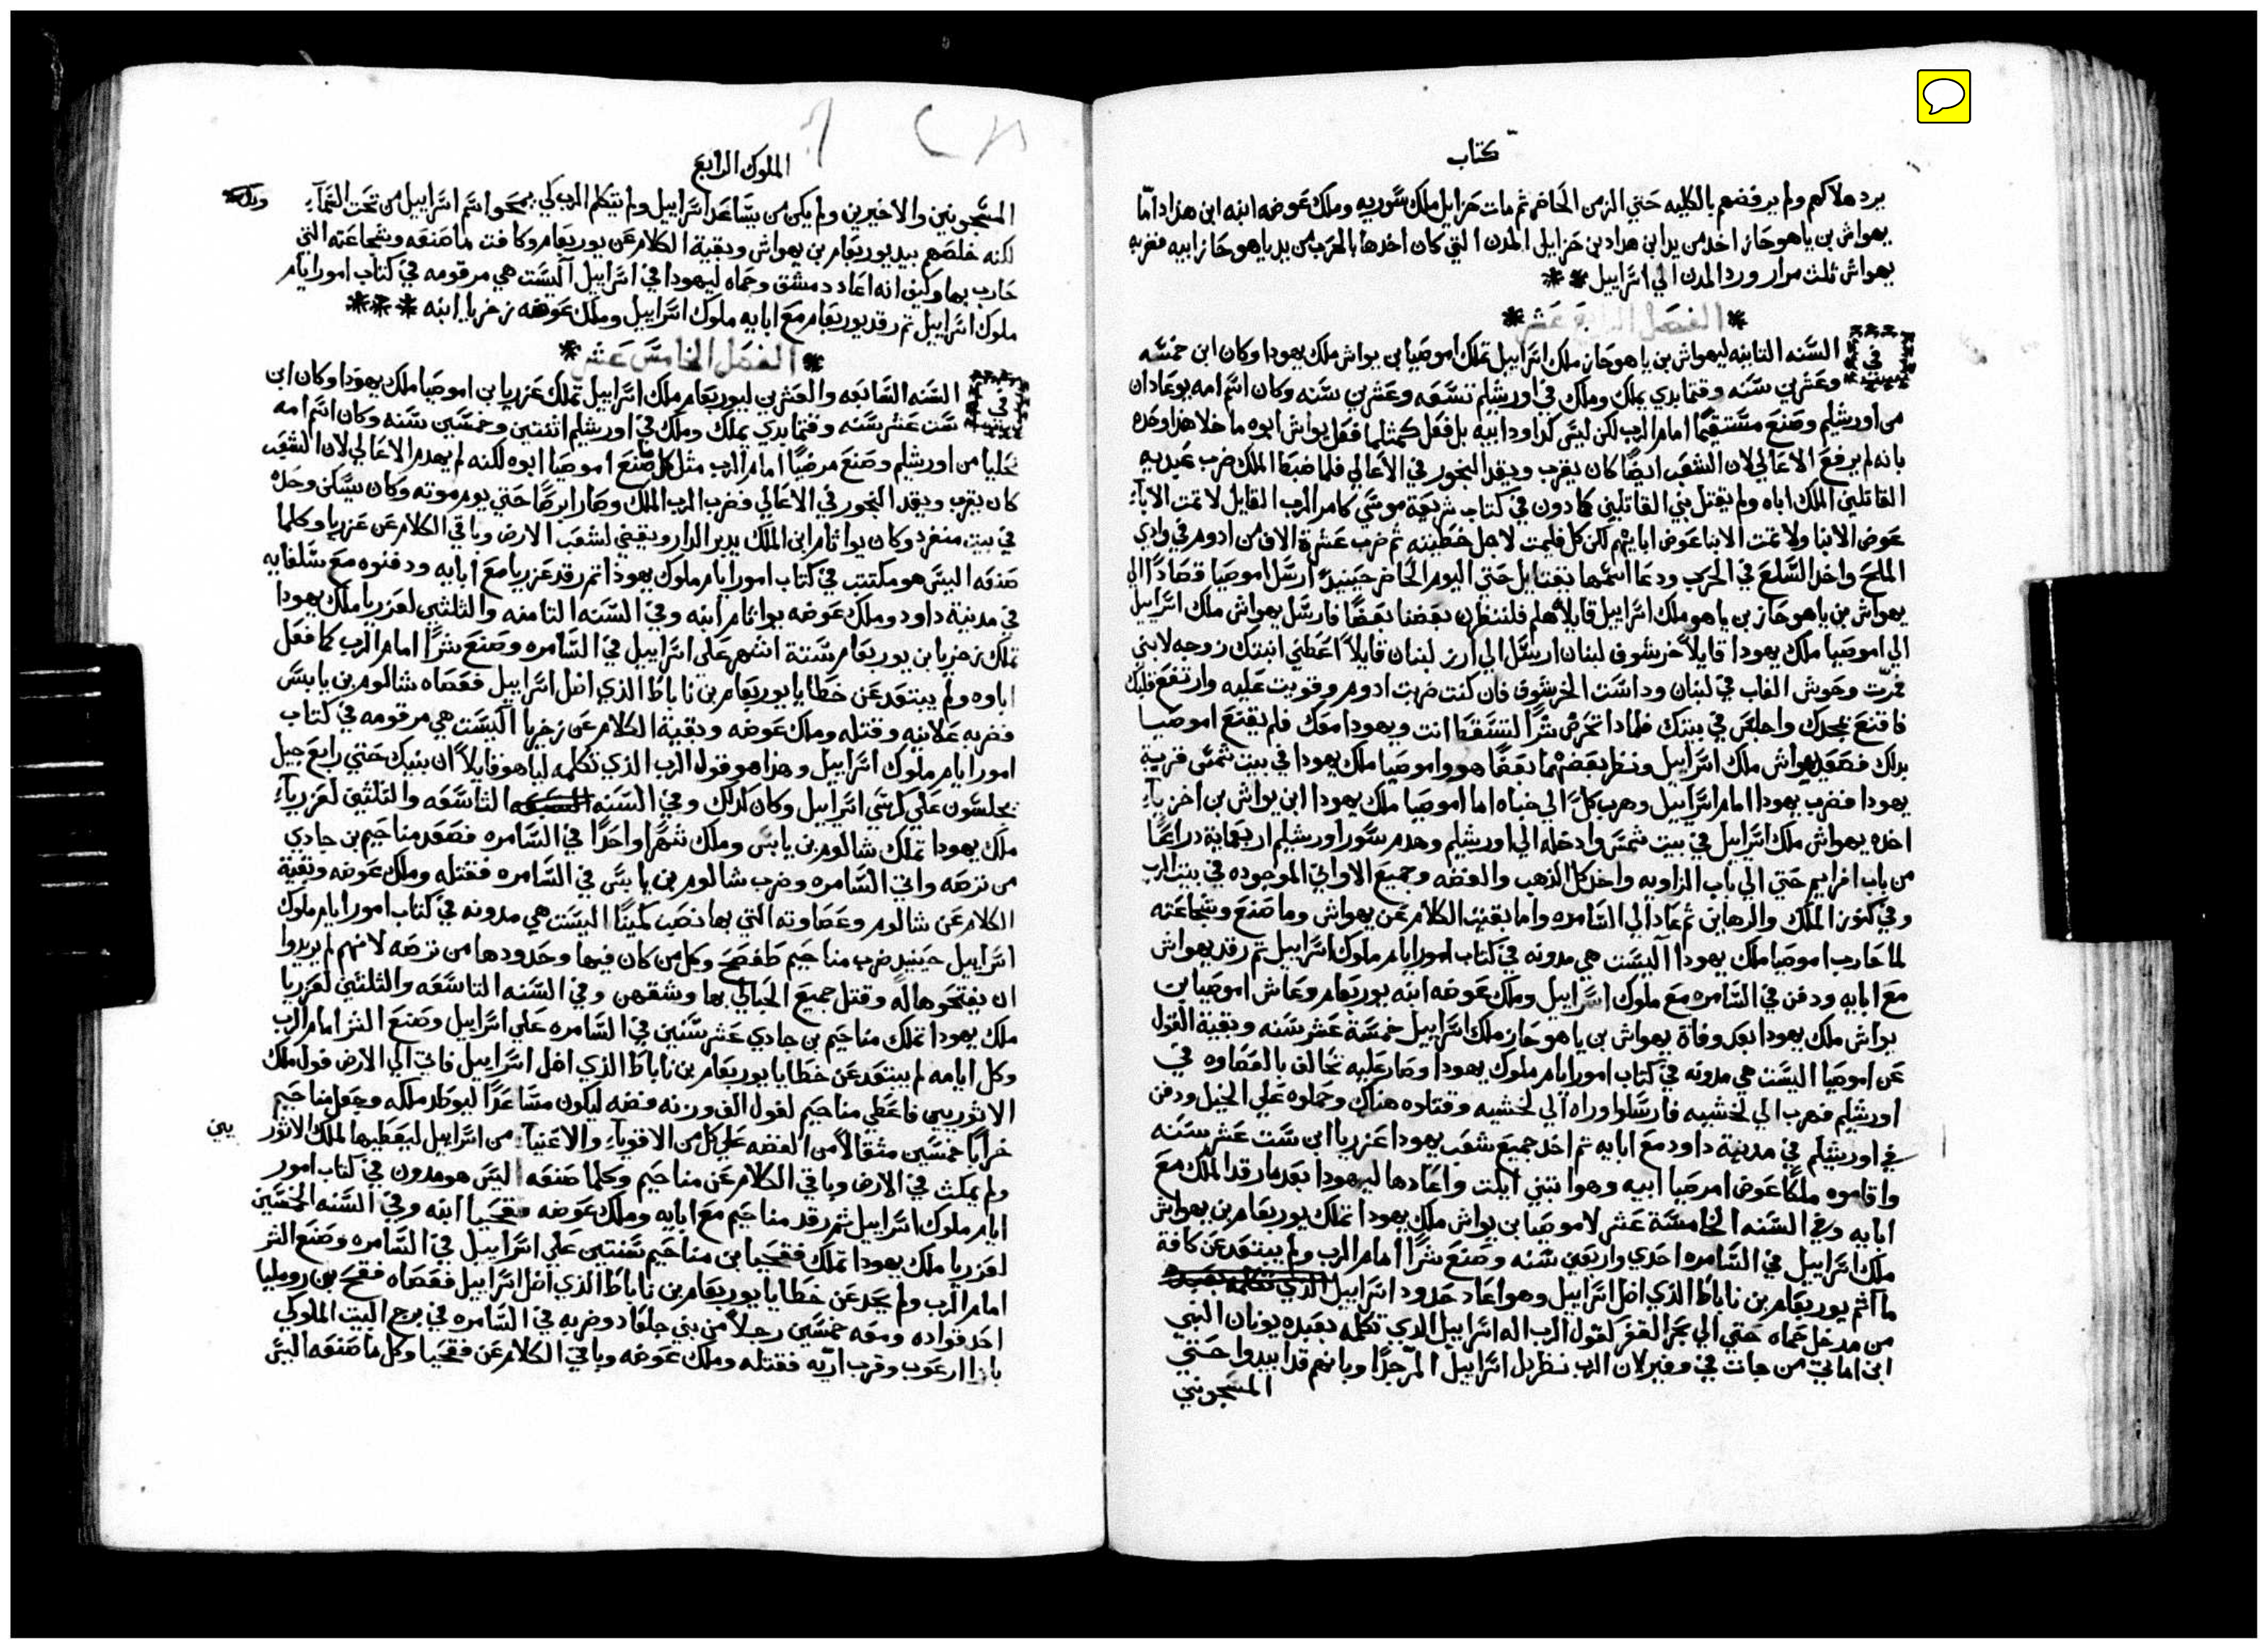 كتاب
يرد هلاكهم ولم يرفضهم بالكليه حتي الزمن الحاضر ثم مات حزاييل ملك سوريه وملك عوضه ابنه ابن هداد اما
يهواش بن ياهوحاز اخد من يد ابن هداد بن حزاييل المدن التي كان اخدها بالحرب من يد ياهوحاز ابيه فضربه
يهواش ثلث مرار ورد المدن الي اسراييل
الفصل الرابع عشر
في السنه الثانيه ليهواش بن ياهوحاز ملك اسراييل تملك اموصيا بن يواش ملك يهودا وكان ابن خمسه
وعشرين سنه وقتما بدي يملك وملك في اورشليم تسعه وعشرين سنه وكان اسم امه يوعادان
من اورشليم وصنع مستقيما امام الرب لكن ليس كداود ابيه بل فعل كمثلما فعل يواش ابوه ما خلا هذا وحده
بانه لم يرفع الاعالي لان الشعب ايضا كان يقرب ويقد البخور في الاعالي فلما ضبط الملك ضرب عبيديه
القاتلين الملك اباه ولم يقتل بني القاتلين كما دون في كتاب شريعة موسي كامر الرب القايل لا تمت الاباء
عوض الابنا ولا تمت الابنا عوض ابايهم لكن كل فليمت لاجل خطيته ثم ضرب عشرة الاف من ادوم في وادي
الملح واخد السلع في الحرب ودعا اسمها يقتاييل حتي اليوم الحاضر حينيد ارسل اموصيا قصادا الي
يهواش بن ياهوحاز بن ياهو ملك اسراييل قايلا هلم فلننظرن بعضنا بعضا فارسل يهواش ملك اسراييل
الي اموصيا ملك يهودا قايلا خرشوف لبنان ارسل الي ارز لبنان قايلا اعطني ابنتك زوجه لابني
فمرت وحوش الغاب في لبنان وداست الخرشوف فان كنت ضربت ادوم وقويت عليه وارتفع قلبك
فاقنع بمجدك واجلس في بيتك فلمادا تحرض شرا لتسقط انت ويهودا معك فلم يقنع اموصيا
بدلك فصعد يهواش ملك اسراييل ونظر بعضهما بعضا هو واموصيا ملك يهودا في بيت شمس قرية
يهودا فضرب يهودا امام اسراييل وهرب كل الي خباه اما اموصيا ملك يهودا ابن يواش بن اخزيا
اخده يهواش ملك اسراييل في بيت شمس وادخله الي اورشليم وهدم سور اورشليم اربعماية دراعا
من باب افرايم حتي الي باب الزاويه واخد كل الدهب والفضه وجميع الاواني الموجوده في بيت الرب
وفي كنوز الملك والرهاين ثم عاد الي السامره واما بقيت الكلام عن يهواش وما صنع وشجاعته
لما حارب اموصيا ملك يهودا اليست هي مدونه في كتاب امور ايام ملوك اسراييل ثم رقد يهواش
مع ابايه ودفن في السامره مع ملوك اسراييل وملك عوضه ابنه يوربعام وعاش اموصيا بن
يواش ملك يهودا بعد وفاة يهواش بن ياهوحاز ملك اسراييل خمسة عشر سنه وبقية القول
عن اموصيا اليست هي مدونه في كتاب امور ايام ملوك يهودا وصار عليه تحالف بالعصاوه في
اورشليم فهرب الي لخشيه فارسلوا وراه الي لخشيه وقتلوه هناك وحملوه علي الخيل ودفن
في اورشليم في مدينة داود مع ابايه ثم اخد جميع شعب يهودا عزريا ابن ست عشر سنه
واقاموه ملكا عوض اموصيا ابيه وهو ابتني ايلت واعادها ليهودا بعد ما رقد الملك مع
ابايه وفي السنه الخامسة عشر لاموصيا بن يواش ملك يهودا تملك يوربعام بن يهواش
ملك اسراييل في السامره احدي واربعين سنه وصنع شرا امام الرب ولم يبتعد عن كافة
ما اثم يوربعام بن ناباط الذي اضل اسراييل وهو اعاد حدود اسراييل
من مدخل حماه حتي الي بحر القفر لقول الرب اله اسراييل الذي تكلم بعبده يونان النبي
ابن اماتي من جات في وفير لان الرب نظر بل اسراييل المر جدا وبانهم قد ابيدوا حتي
المسجونين
الملوك الرابع
المسجونين والاخيرين ولم يكن من يساعد اسراييل ولم يتكلم الرب كي يمحو اسم اسراييل من تحت السماء
لكنه خلصهم بيد يوربعام بن يهواش وبقية الكلام عن يوربعام وكافت ما صنعه وشجاعته التي
حارب بها وكيف انه اعاد دمشق وحماه ليهودا في اسراييل اليست هي مرقومه في كتاب امور ايام
ملوك اسراييل ثم رقد يوربعام مع ابايه ملوك اسراييل وملك عوضه زخريا ابنه
الفصل الخامس عشر
في السنه السابعه والعشرين ليوربعام ملك اسراييل تملك عزريا بن اموصيا ملك يهودا وكان ابن
ست عشر سنه وقتما بدي يملك وملك في اورشليم اثنتين وخمسين سنه وكان اسم امه
يخليا من اورشليم وصنع مرضيا امام الرب مثل كل ما صنع اموصيا ابوه لكنه لم يهدم الاعالي لان الشعب
كان يقرب ويقد البخور في الاعالي فضرب الرب الملك وصار ابرصا حتي يوم موته وكان يسكن وحده
في بيت منفرد وكان يواثام ابن الملك يدبر الدار ويقضي لشعب الارض وباقي الكلام عن عزريا وكلما
صنعه اليس هو مكتتب في كتاب امور ايام ملوك يهودا ثم رقد عزريا مع ابايه ودفنوه مع سلفايه
في مدينة داود وملك عوضه يواثام ابنه وفي السنه الثامنه والثلثين لعزريا ملك يهودا
تملك زخريا بن يوربعام ستة اشهر علي اسراييل في السامره وصنع شرا امام الرب كما فعل
اباوه ولم يبتعد عن خطايا يوربعام بن ناباط الذي اضل اسراييل فعصاه شالوم بن يابس
فضربه علانيه وقتله وملك عوضه وبقية الكلام عن زخريا اليست هي مرقومه في كتاب
امور ايام ملوك اسراييل وهذا هو قول الرب الذي تكلمه لياهو قايلا ان بنيك حتي رابع جيل
يجلسون علي كرسي اسراييل وكان كدلك وفي السنه التاسعه والثلثين لعزريا
ملك يهودا تملك شالوم بن يابس وملك شهرا واحدا في السامره فصعد مناحيم بن جادي
من ترصه واتي السامره وضرب شالوم بن يابس في السامره فقتله وملك عوضه وبقية
الكلام عن شالوم وعصاوته التي بها نصب كمينا اليست هي مدونه في كتاب امور ايام ملوك
اسراييل حينيد ضرب مناحيم طفصح وكل من كان فيها وحدودها من ترصه لانهم لم يريدوا
ان يفتحوها له وقتل جميع الحبالي بها وشقهن وفي السنه التاسعه والثلثين لعزريا
ملك يهودا تملك مناحيم بن جادي عشر سنين في السامره علي اسراييل وصنع الشر امام الرب
وكل ايامه لم يبتعد عن خطايا يوربعام بن ناباط الذي اضل اسراييل فاتي الي الارض فول ملك
الاثوريين فاعطي مناحيم لفول الف وزنه فضه ليكون مساعدا ليوطد ملكه وجعل مناحيم
خراجا خمسين مثقالا من الفضه علي كل من الاقوياء والاغنياء من اسراييل ليعطيها لملك الاثور
يين
ولم يمكث في الارض وباقي الكلام عن مناحيم وكلما صنعه اليس هو مدون في كتاب امور
ايام ملوك اسراييل ثم رقد مناحيم مع ابايه وملك عوضه فقحيا ابنه وفي السنه الخمسين
لعزريا ملك يهودا تملك فقحيا بن مناحيم سنتين علي اسراييل في السامره وصنع الشر
امام الرب ولم يحد عن خطايا يوربعام بن ناباط الذي اضل اسراييل فعصاه فقح بن روميليا
احد قواده ومعه خمسين رجلا من بني جلعاد وضربه في السامره في برج البيت الملوكي
بازا ارغوب وقرب اريه فقتله وملك عوضه وباقي الكلام عن فقحيا وكل ما صنعه اليس